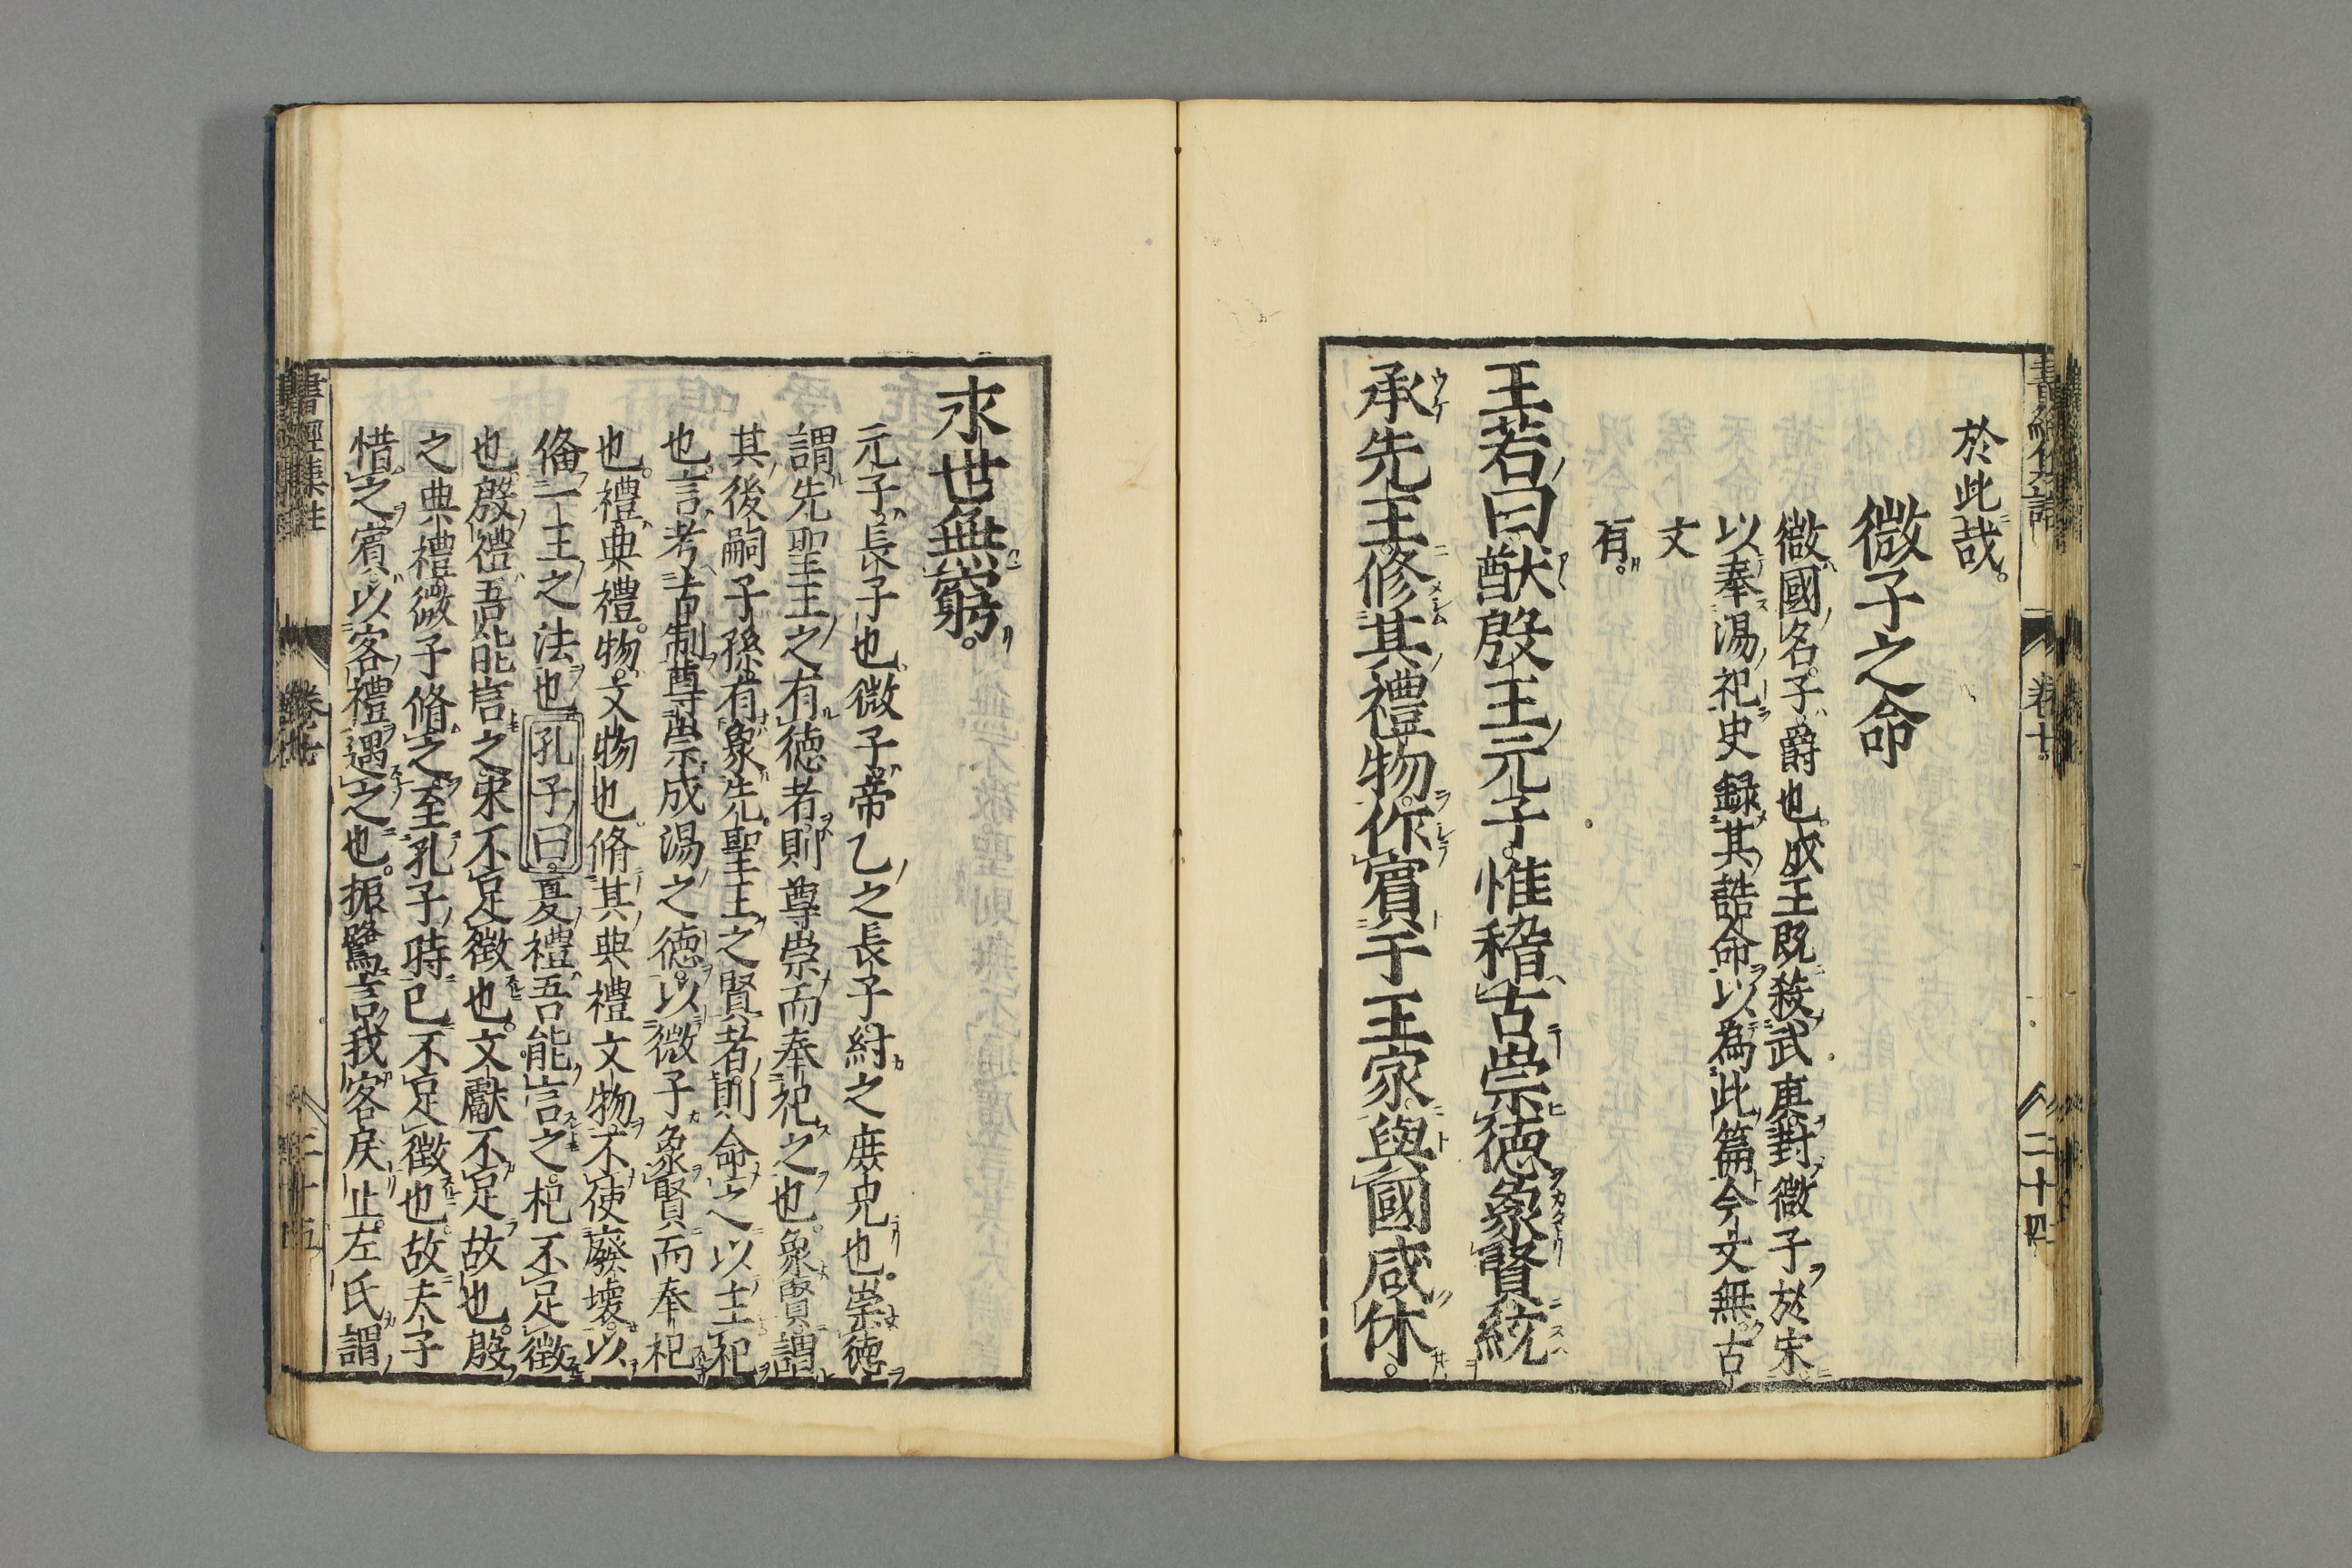 於此哉
微子之命
微國名子爵也成王既殺武庚封微子於宋
以奉湯祀史録其誥命以爲此篇今文無古
文
有
王若曰猷殷王元子惟稽古崇徳象賢統
承先王修其禮物作賓于王家與國咸休
永世無窮
元子長子也微子帝乙之長子紂之庻兄也崇徳
謂先聖王之有徳者則尊崇而奉祀之也象賢謂
其後嗣子孫有象先聖王之賢者則命之以主祀
也言考古制尊崇成湯之徳以微子象賢而奉祀
也禮典禮物文物也脩其典禮文物不使廢壊以
俻一王之法也孔子曰夏禮吾能言之杞不足徴
也殷禮吾能言之宋不足徴也文獻不足故也殷
之典禮微子脩之至孔子時已不足徴也故夫子
惜之賓以客禮遇之也振鷺言我客戻止左氏謂
書經集註 卷七 二十五
二十四